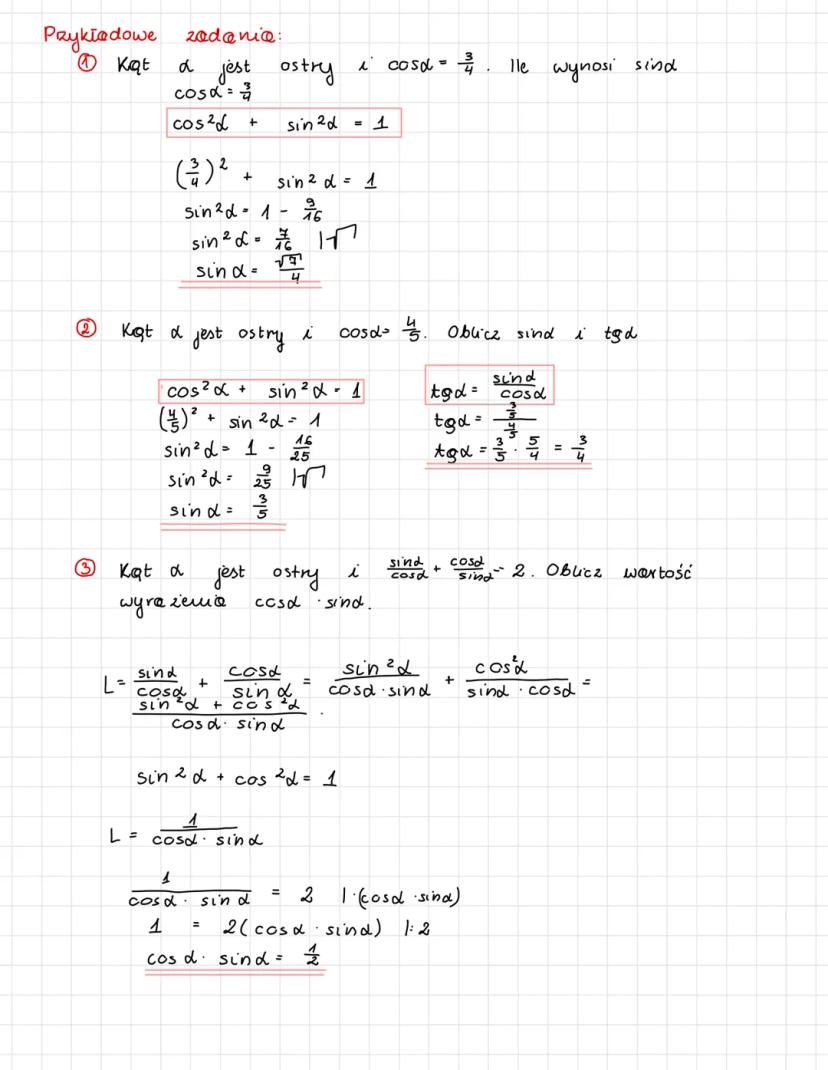 Przykładowe zadania:
① Kąt α jest ostry i cosα = 3/4. Ile wynosi sinα
cosα = 3/4
cos²α + sin²α = 1
(3/4)² + sin²α = 1
sin²α = 1 - 9/16
sin²α = 7/16 |√
sinα = √7/4
② Kąt α jest ostry i cosα= 4/5. Oblicz sinα i tgα
cos²α + sin²α = 1
(4/5)² + sin²α = 1
sin²α = 1 - 16/25
sin²α = 9/25 |√
sinα = 3/5
tgα = sinα/cosα
tgα = (3/5)/(4/5)
tgα = 3/5 · 5/4 = 3/4
③ Kąt α jest ostry i sinα/cosα + cosα/sinα = 2. Oblicz wartość
wyrażenia cosα · sinα.
L = sinα/cosα + cosα/sinα = sin²α/(cosα · sinα) + cos²α/(sinα · cosα) =
(sin²α + cos²α)/(cosα · sinα).
sin²α + cos²α = 1
L = 1/(cosα · sinα)
1/(cosα · sinα) = 2 |·(cosα · sinα)
1 = 2(cosα · sinα) |:2
cosα · sinα = 1/2